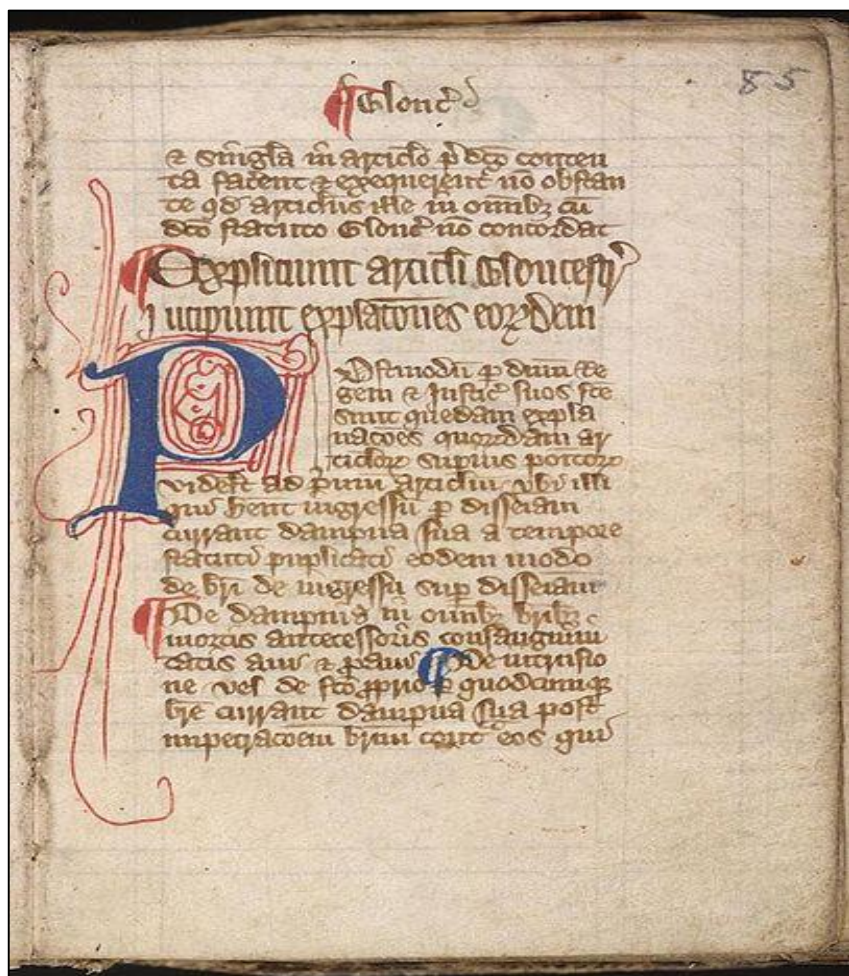 85
Gloucr̃
⁊ singl̃a in articl̃o p̃dc̃o conten
ta facent ⁊ exequerent᷑ nõ obstan
te qd̃ articl̃us ille in om̃ibꝫ cũ
dc̃o statuto Gloucr̃ nõ concordat
Expliciunt articl̃i Gloucestr̃
Incipiunt exp̃lac̃ones eoꝝdem
Postmodũ ꝑ dñm Re
gem ⁊ Justic̃ suos fc̃e
sunt quedam expla
nac̃oes quorũdam ar
ticl̃oꝝ supius poitoꝝ
videlt̃ ad p̃mum articl̃m vbi illi
qui hẽnt ingressũ ꝑ disseiam
currant dampna sua a tempore
statuti puplicati eodem modo
de br̃i de ingressu sup̱ disseiam
De dampnis in om̃ibꝫ br̃ibꝫ
mortis antecessoris consanguini
tatis aui ⁊ ꝓaui De intrusio
ne vel de fc̃o ꝓprio ꝑ quodcumqꝫ
br̃e currant dampna sua post
impetrac̃oem br̃ium cont̃ eos qui